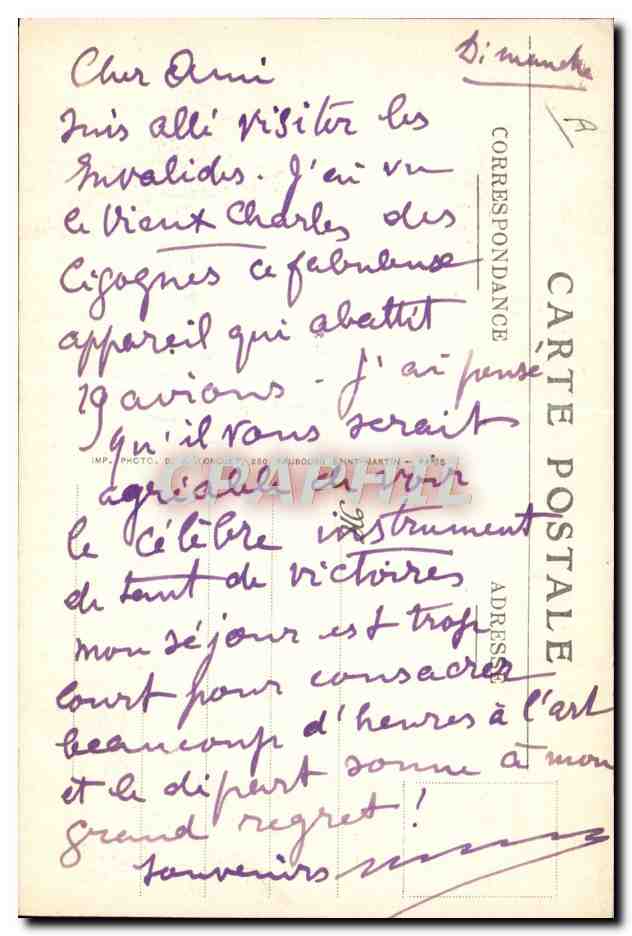 Dimanche
A
Cher Ami
suis allé visiter les
Invalides. J'ai vu
le Vieux Charles des
Cigognes ce fabuleux
appareil qui abattit
19 avions - J'ai pensé
qu'il vous serait
agréable de voir
le célèbre instrument
de tant de victoires
mon séjour est trop
court pour consacrer
beaucoup d'heures à l'art
et le départ sonne à mon
grand regret !
Souvenirs
CARTE POSTALE
CORRESPONDANCE
ADRESSE
M
IMP. PHOTO. 280, FAUBOURG SAINT-MARTIN - PARIS
CPAPHIL